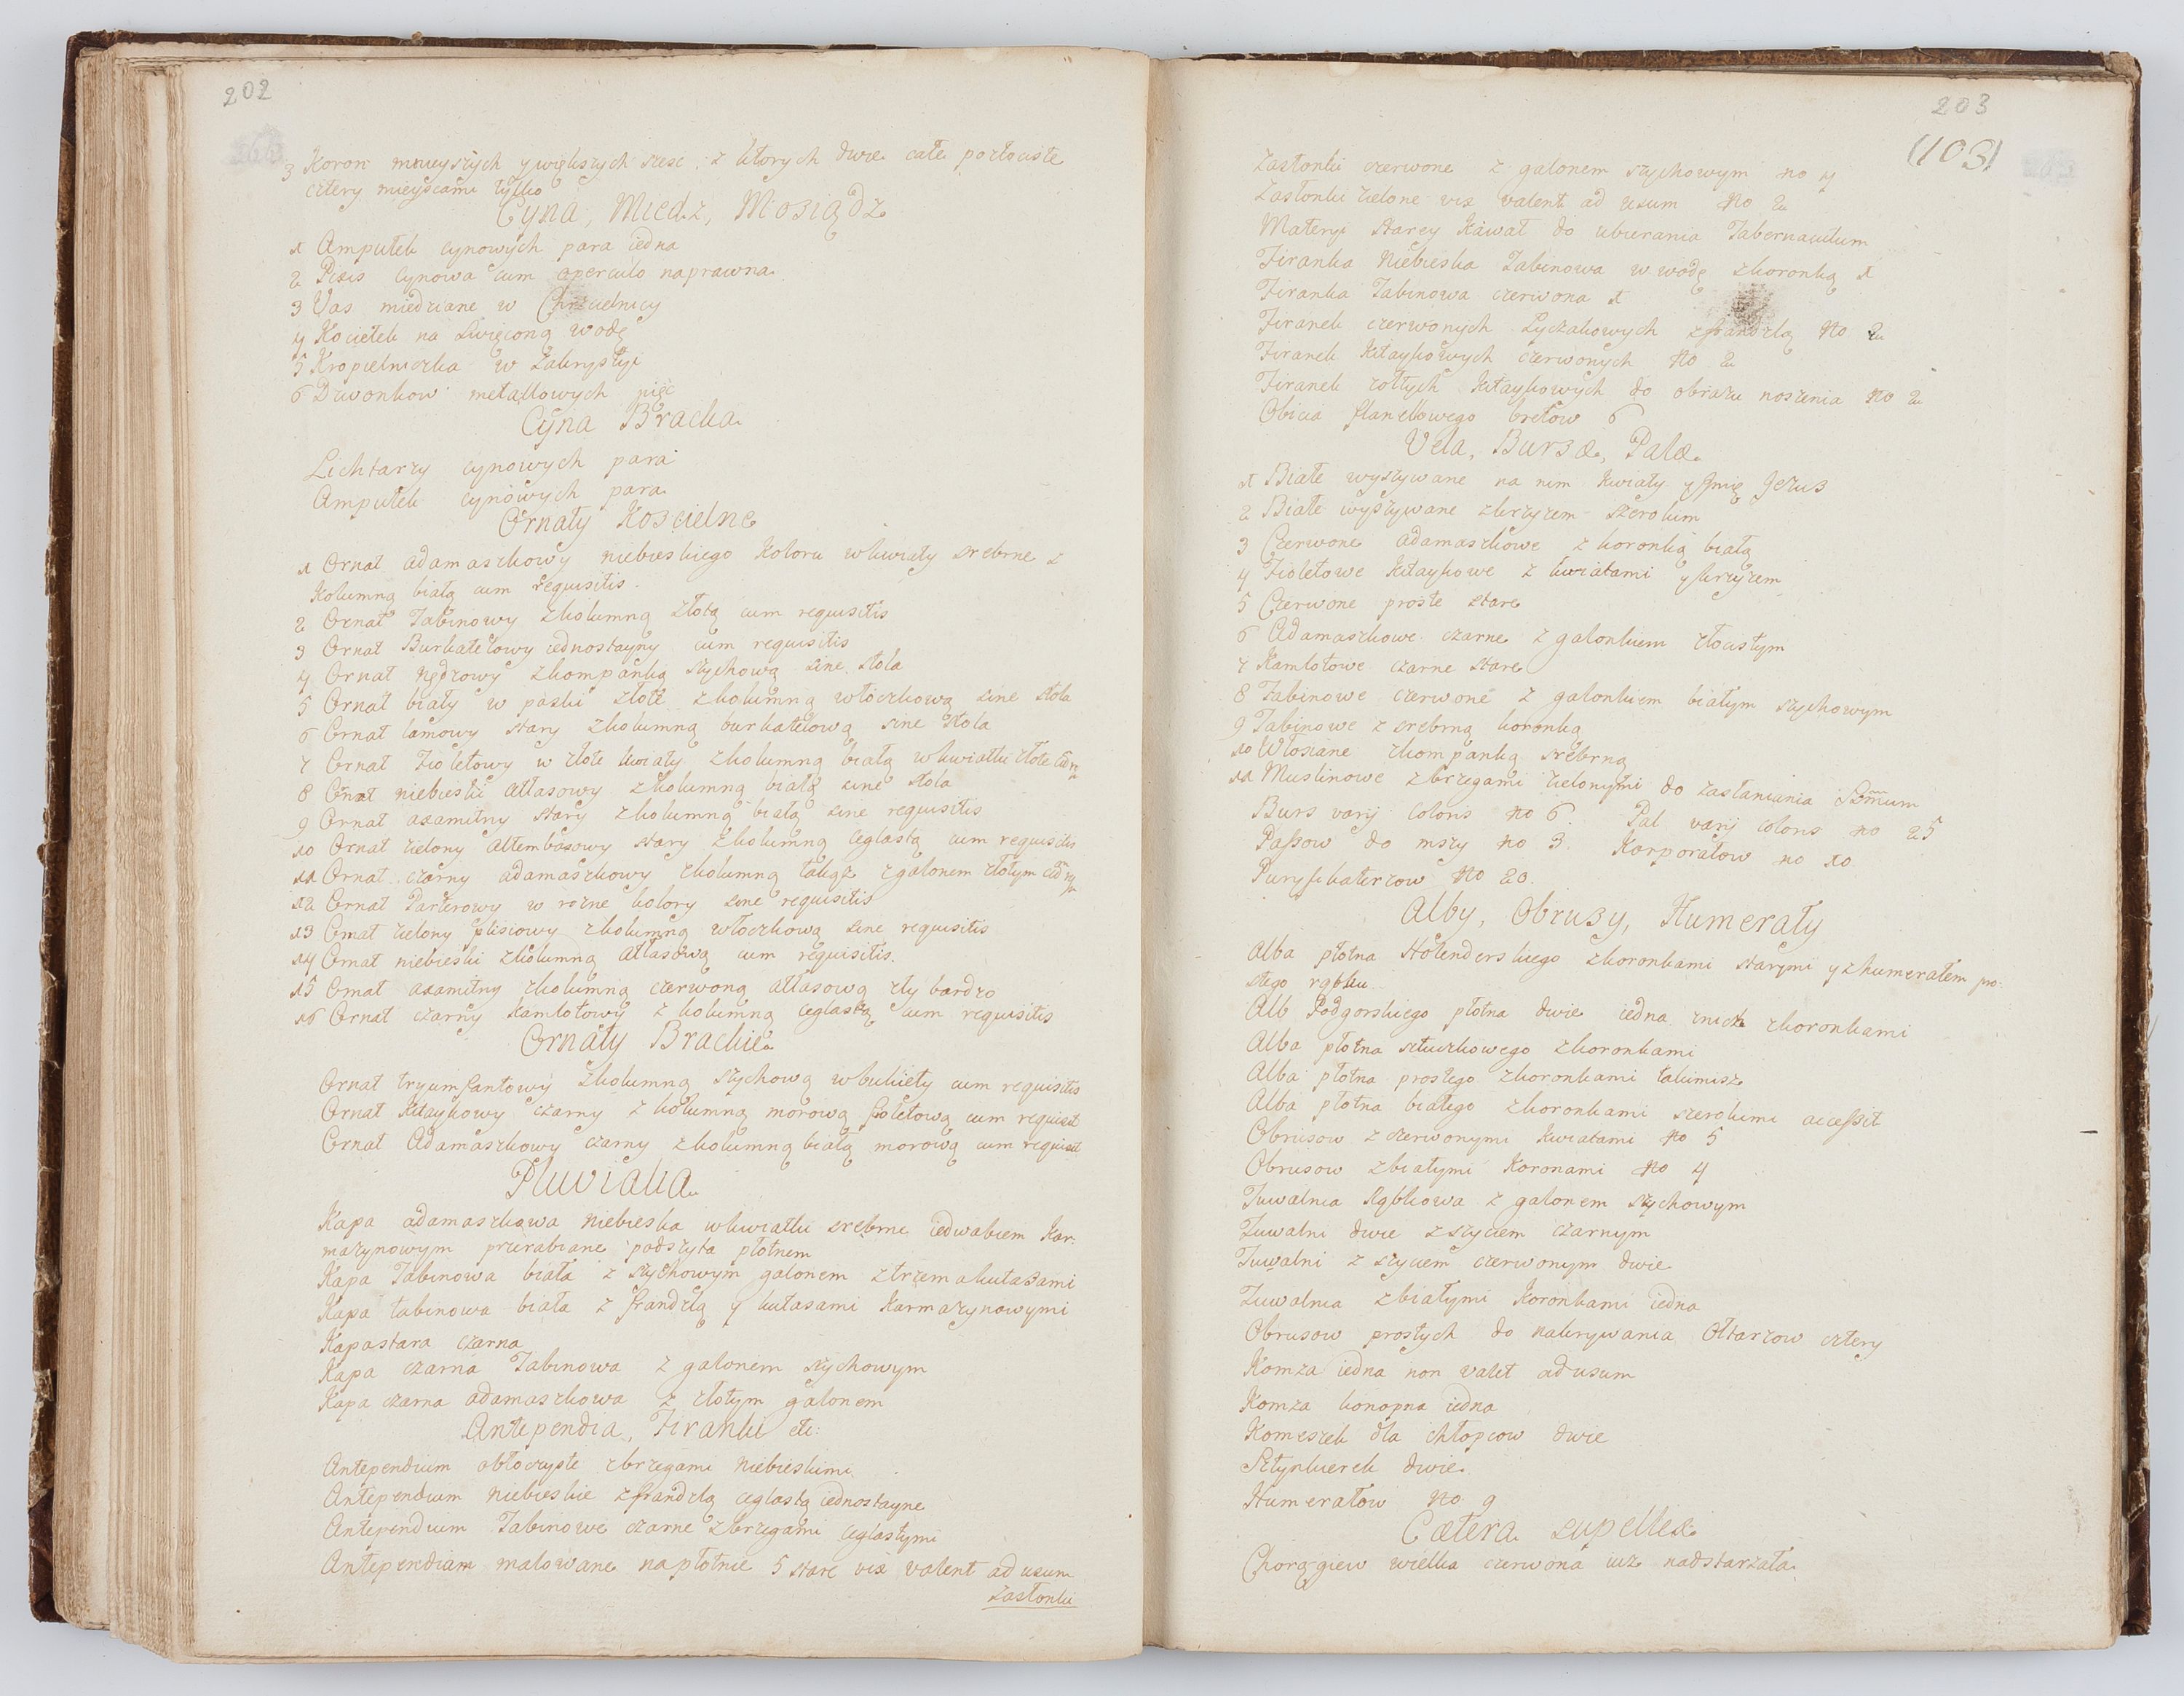 202
3 Koron mnieyszych y większych sześć z ktorych dwie całe pozłociste
cztery mieyscami tylko
Cyna, Miedz, Mosiądz
1 Ampułek cynowych para iedna
2 Pixis Cynowa cum operculo naprawna
3 Vas miedziane w Chrzcielnicy
4 Kociełek na Swięconą wodę
5 Kropielniczka w Zakrystyi
6 Dzwonkow metallowych pięc
Cyna Bracka
Lichtarzy cynowych para
Ampułek cynowych para
Ornaty Koscielne
1 Ornat adamaszkowy niebieskiego Koloru wkwiaty srebrne z
Kolumną białą cum requisitis
2 Ornat Tabinowy zkolumną złotą cum requisitis
3 Ornat Burkatelowy iednostayny cum requisitis
4 Ornat zkompanką szychową sine stola
5 Ornat biały w paski złote zkolumną włoczkową sine stola
6 Ornat lamowy stary zkolumną burkatelową sine stola
7 Ornat Fioletowy w złote kwiaty zkolumną białą wkwiatki złote
8 Ornat niebieski attasowy zkolumną białą sine stola
9 Ornat axamitny stary zkolumną białą sine requisitis
10 Ornat zielony attembasowy stary zkolumną ceglastą cum requisitis
11 Ornat czarny adamaszkowy zkolumną takąż zgalonem złotym
12 Ornat Parterowy w rożne kolory sine requisitis
13 Ornat zielony plisiowy zkolumną włoczkową sine requisitis
14 Ornat niebieski zkolumną attasową cum requisitis.
15 Ornat axamitny zkolumną czerwoną attasową zły bardzo
16 Ornat czarny Kamlotowy z kolumną ceglastą cum requisitis
Ornaty Brackie
Ornat tryumfantowy zkolumną szychową wbukiety cum requisitis
Ornat Kitaykowy czarny z kolumną morową fioletową cum requisit
Ornat Adamaszkowy czarny zkolumną białą morową cum requisit
Pluvialia
Kapa adamaszkowa niebieska wkwiatki srebrne iedwabiem Kar-
mazynowym przerabiane podszyta płotnem
Kapa Tabinowa biała z szychowym galonem ztrzema kutasami
Kapa tabinowa biała z frandzlą y kutasami Karmazynowymi
Kapa stara czarna
Kapa czarna Tabinowa z galonem szychowym
Kapa czarna adamaszkowa z złotym galonem
Antependia, Firanki etc:
Antependium obłoczyste zbrzegami niebieskimi
Antependium niebieskie zfrandzlą ceglastą iednostayne
Antependium Tabinowe czarne zbrzegami ceglastymi
Antependiam malowane napłotnie 5 stare vix valent ad usum
Zasłonki
203
(103)
Zasłonki czerwone z galonem szychowym no 4
Zasłonki zielone vix valent ad usum No 2
Materyi Starey Kawał do ubierania Tabernaculum
Firanka Niebieska Tabinowa w wodę zkoronką 1
Firanka Tabinowa czerwona 1
Firanek czerwonych Łyczakowych zfrandzlą No 2
Firanek Kitaykowych czerwonych No 2
Firanek zołtych Kitaykowych do obrazu noszenia No 2
Obicia flanellowego bretow 6
Vela, Bursæ, Palæ
1 Białe wyszywane na nim Kwiaty y Jmię Jezus
2 Białe wyszywane zkrzyzem szerokim
3 Czerwone adamaszkowe z koronką białą
4 Fioletowe Kitaykowe z kwiatami y krzyzem
5 Czerwone proste stare
6 Adamaszkowe czarne z galonkiem złocistym
7 Kamlotowe czarne stare
8 Tabinowe czerwone z galonkiem białym szychowym
9 Tabinowe z srebrną koronką
10 Włosiane zkompanką srebrną
11 Muslinowe zbrzegami zielonymi do zasłaniania
Burs varij coloris no 6. Pal varij coloris no 25
Passow do mszy no 3. Korporałow no 10
Puryfikaterzow No 20.
Alby, Obrusy, Humerały
Alba płotna Holenderskiego zkoronkami starymi y zhumerałem pro-
stego rąbku
Alb Podgorskiego płotna dwie iedna znich zkoronkami
Alba płotna sztuczkowego zkoronkami
Alba płotna prostego zkoronkami takimisz
Alba płotna białego zkoronkami szerokimi accessit
Obrusow z czerwonymi Kwiatami No 5
Obrusow zbiałymi Koronami No 4
Tuwalnia Rąbkowa z galonem szychowym
Tuwalni dwie zszyciem czarnym
Tuwalni z szyciem czerwonym dwie
Tuwalnia zbiałymi Koronkami iedna
Obrusow prostych do nakrywania Ołtarzow cztery
Komża iedna non valet ad usum
Komża konopna iedna
Komeszek dla chłopcow dwie
Sztynkierek dwie
Humerałow No 9
Cætera supellex
Chorągiew wielka czerwona iuz nadstarzała